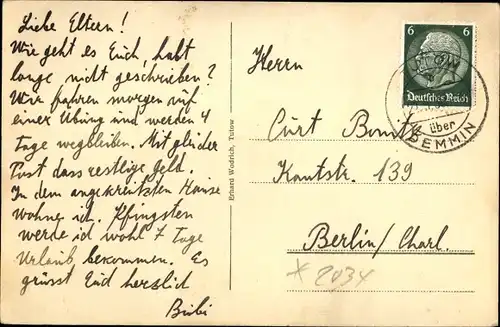 Liebe Eltern!
Wie geht es Euch, habt
lange nicht geschrieben?
Wir fahren morgen auf
einer Übung und werden 4
Tage wegbleiben. Mit gleicher
Post dass restlige Geld.
In dem angekreutzten Hause
wohne ich. Pfingsten
werde ich wohl 7 Tage
Urlaub bekommen. Es
grüsst Euch herzlich
Bubi
Erhard Wodrich, Tutow
6 6
Deutsches Reich
über
DEMMIN
Herrn
Curt
Kantstr. 139
Berlin/Charl.
* 2434